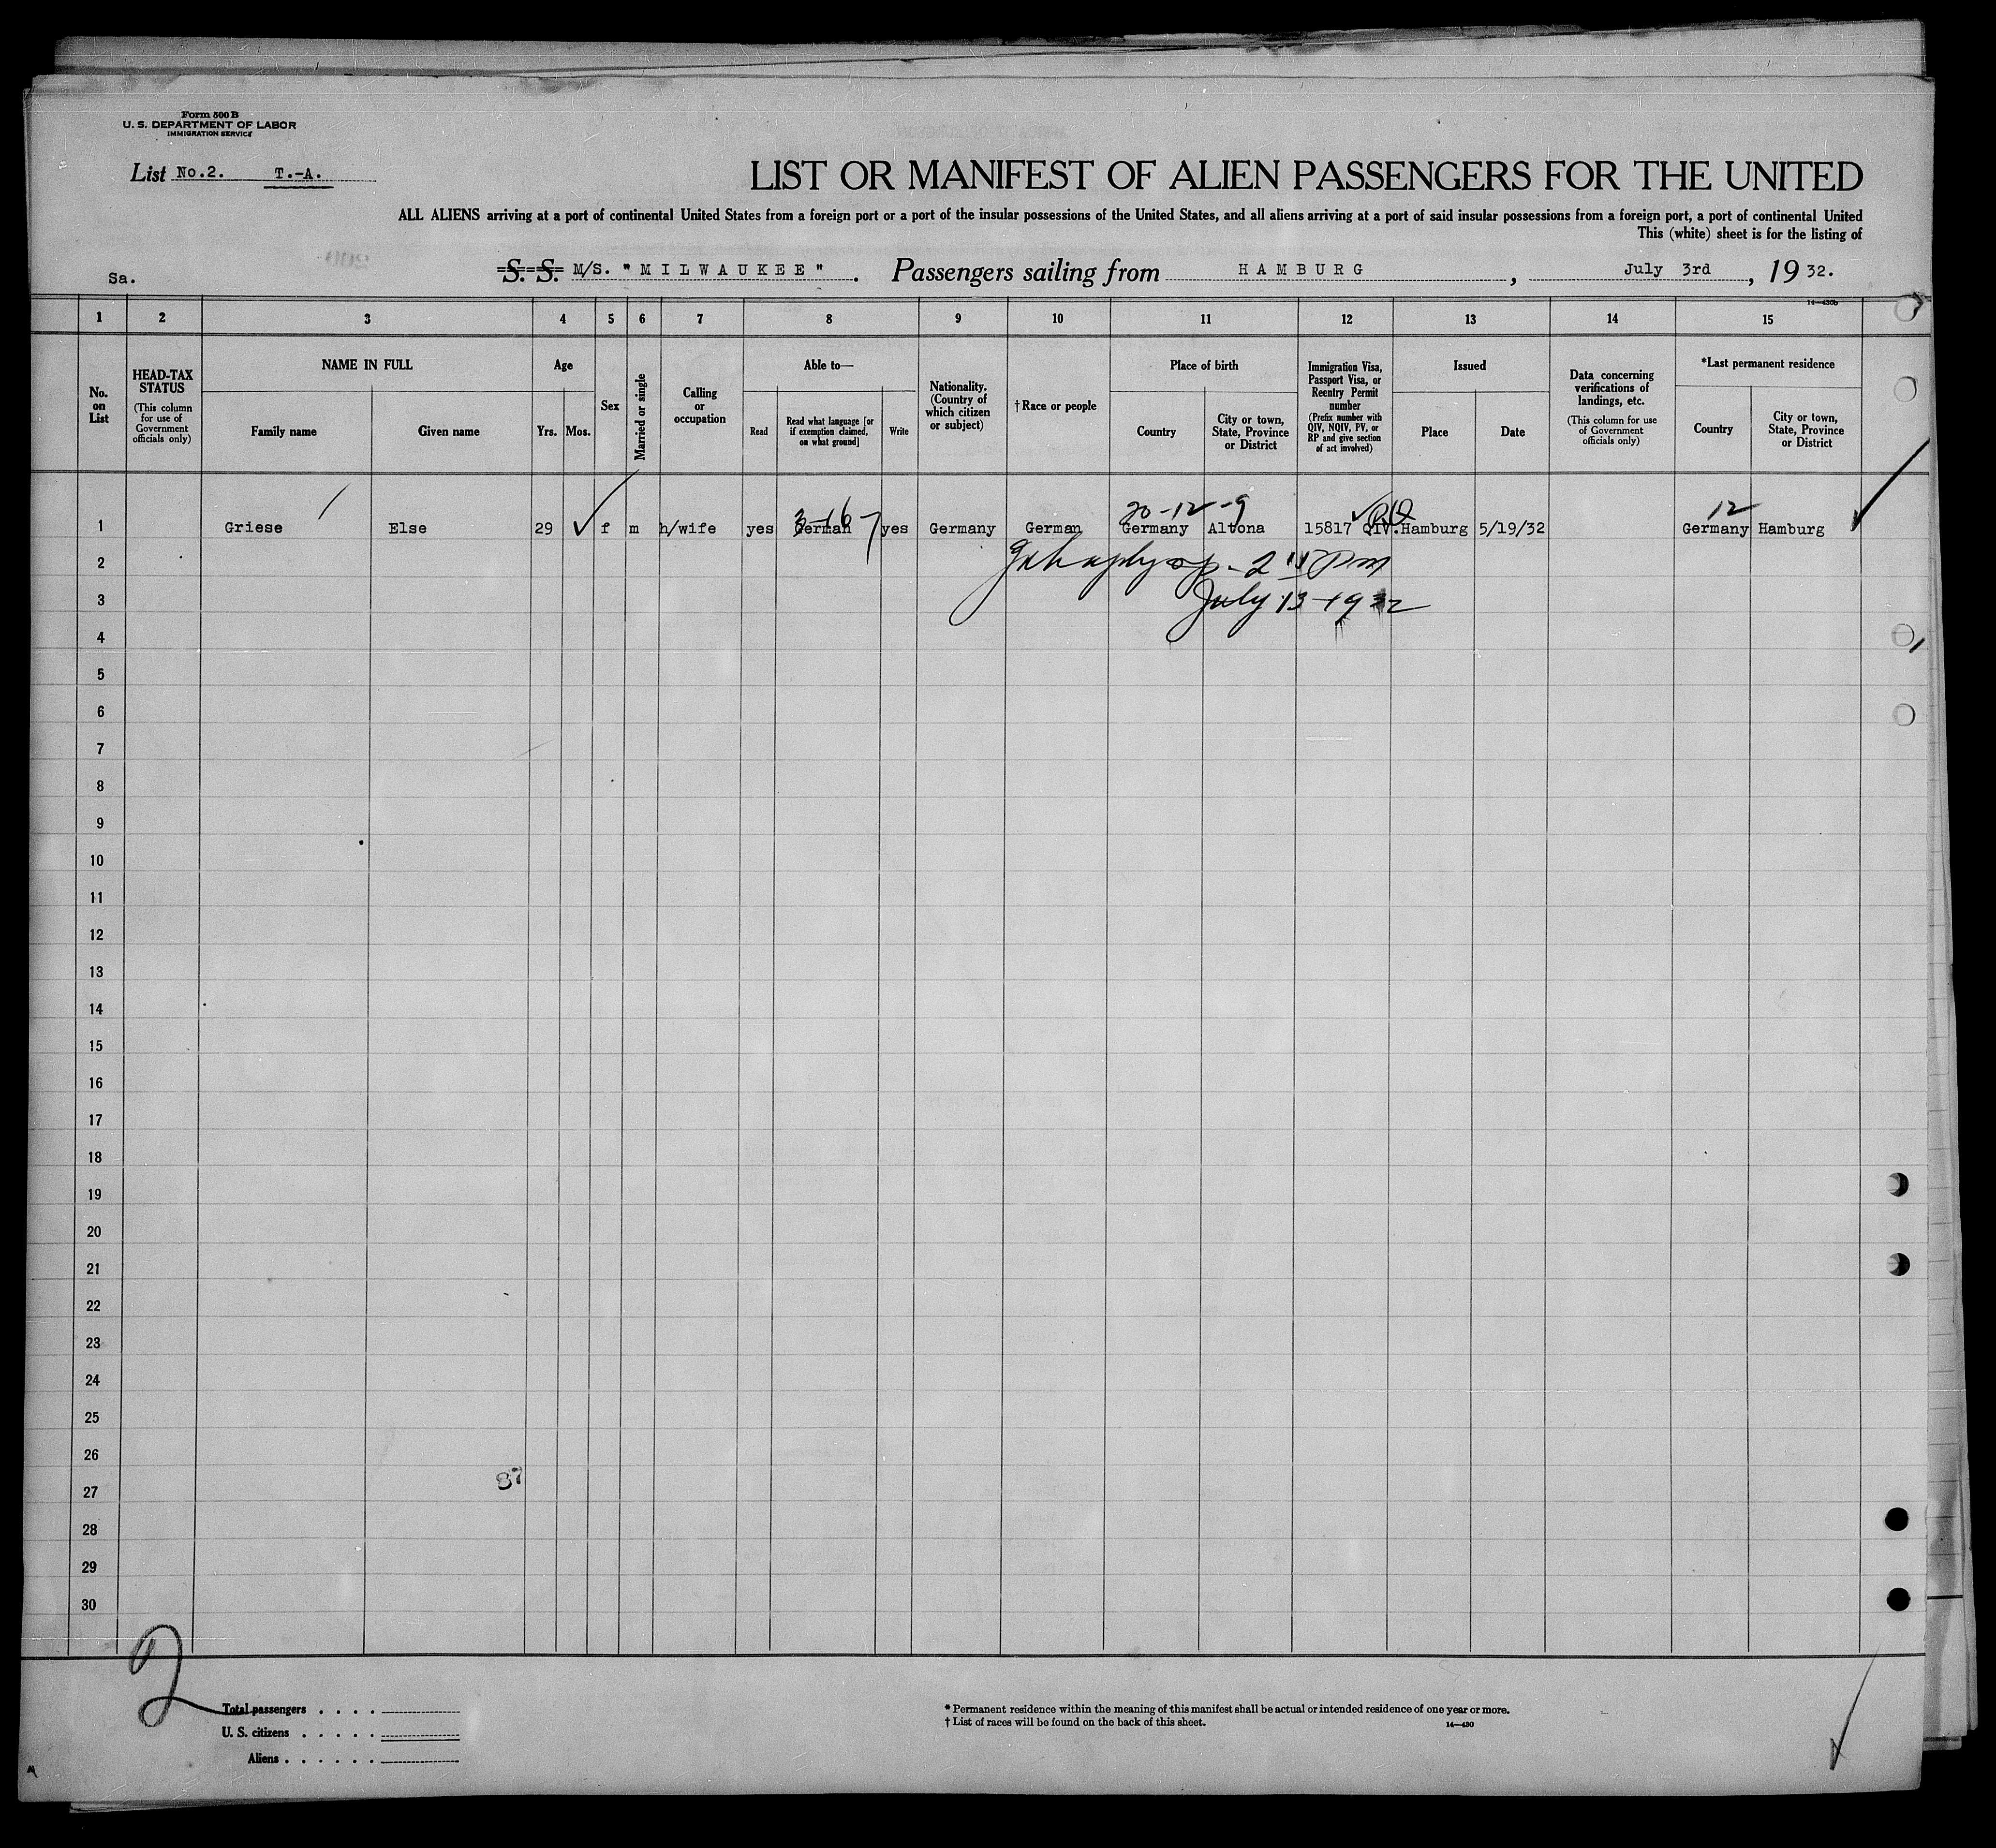 Form 500 B
U. S. DEPARTMENT OF LABOR
IMMIGRATION SERVICE
List No.2. T.-A.
LIST OR MANIFEST OF ALIEN PASSENGERS FOR THE UNITED
ALL ALIENS arriving at a port of continental United States from a foreign port or a port of the insular possessions of the United States, and all aliens arriving at a port of said insular possessions from a foreign port, a port of continental United
This (white) sheet is for the listing of
Sa.
S. S. M/S. "MILWAUKEE". Passengers sailing from HAMBURG, July 3rd, 19 32.
14—430b
1 2 3 4 5 6 7 8 9 10 11 12 13 14 15
No. on List
HEAD-TAX STATUS
(This column for use of Government officials only)
NAME IN FULL
Family name
Given name
Age
Yrs.
Mos.
Sex
Married or single
Calling or occupation
Able to—
Read
Read what language [or if exemption claimed, on what ground]
Write
Nationality. (Country of which citizen or subject)
† Race or people
Place of birth
Country
City or town, State, Province or District
Immigration Visa, Passport Visa, or Reentry Permit number
(Prefix number with QIV, NQIV, PV, or RP and give section of act involved)
Issued
Place
Date
Data concerning verifications of landings, etc.
(This column for use of Government officials only)
*Last permanent residence
Country
City or town, State, Province or District
3-16 20-12-9 12
1 Griese Else 29 f m h/wife yes German yes Germany German Germany Altona 15817 QIV. Hamburg 5/19/32 Germany Hamburg
2
July 13-1932
3
4
5
6
7
8
9
10
11
12
13
14
15
16
17
18
19
20
21
22
23
24
25
26
87
27
28
29
30
2
Total passengers
U. S. citizens
Aliens
* Permanent residence within the meaning of this manifest shall be actual or intended residence of one year or more.
† List of races will be found on the back of this sheet.
14—430